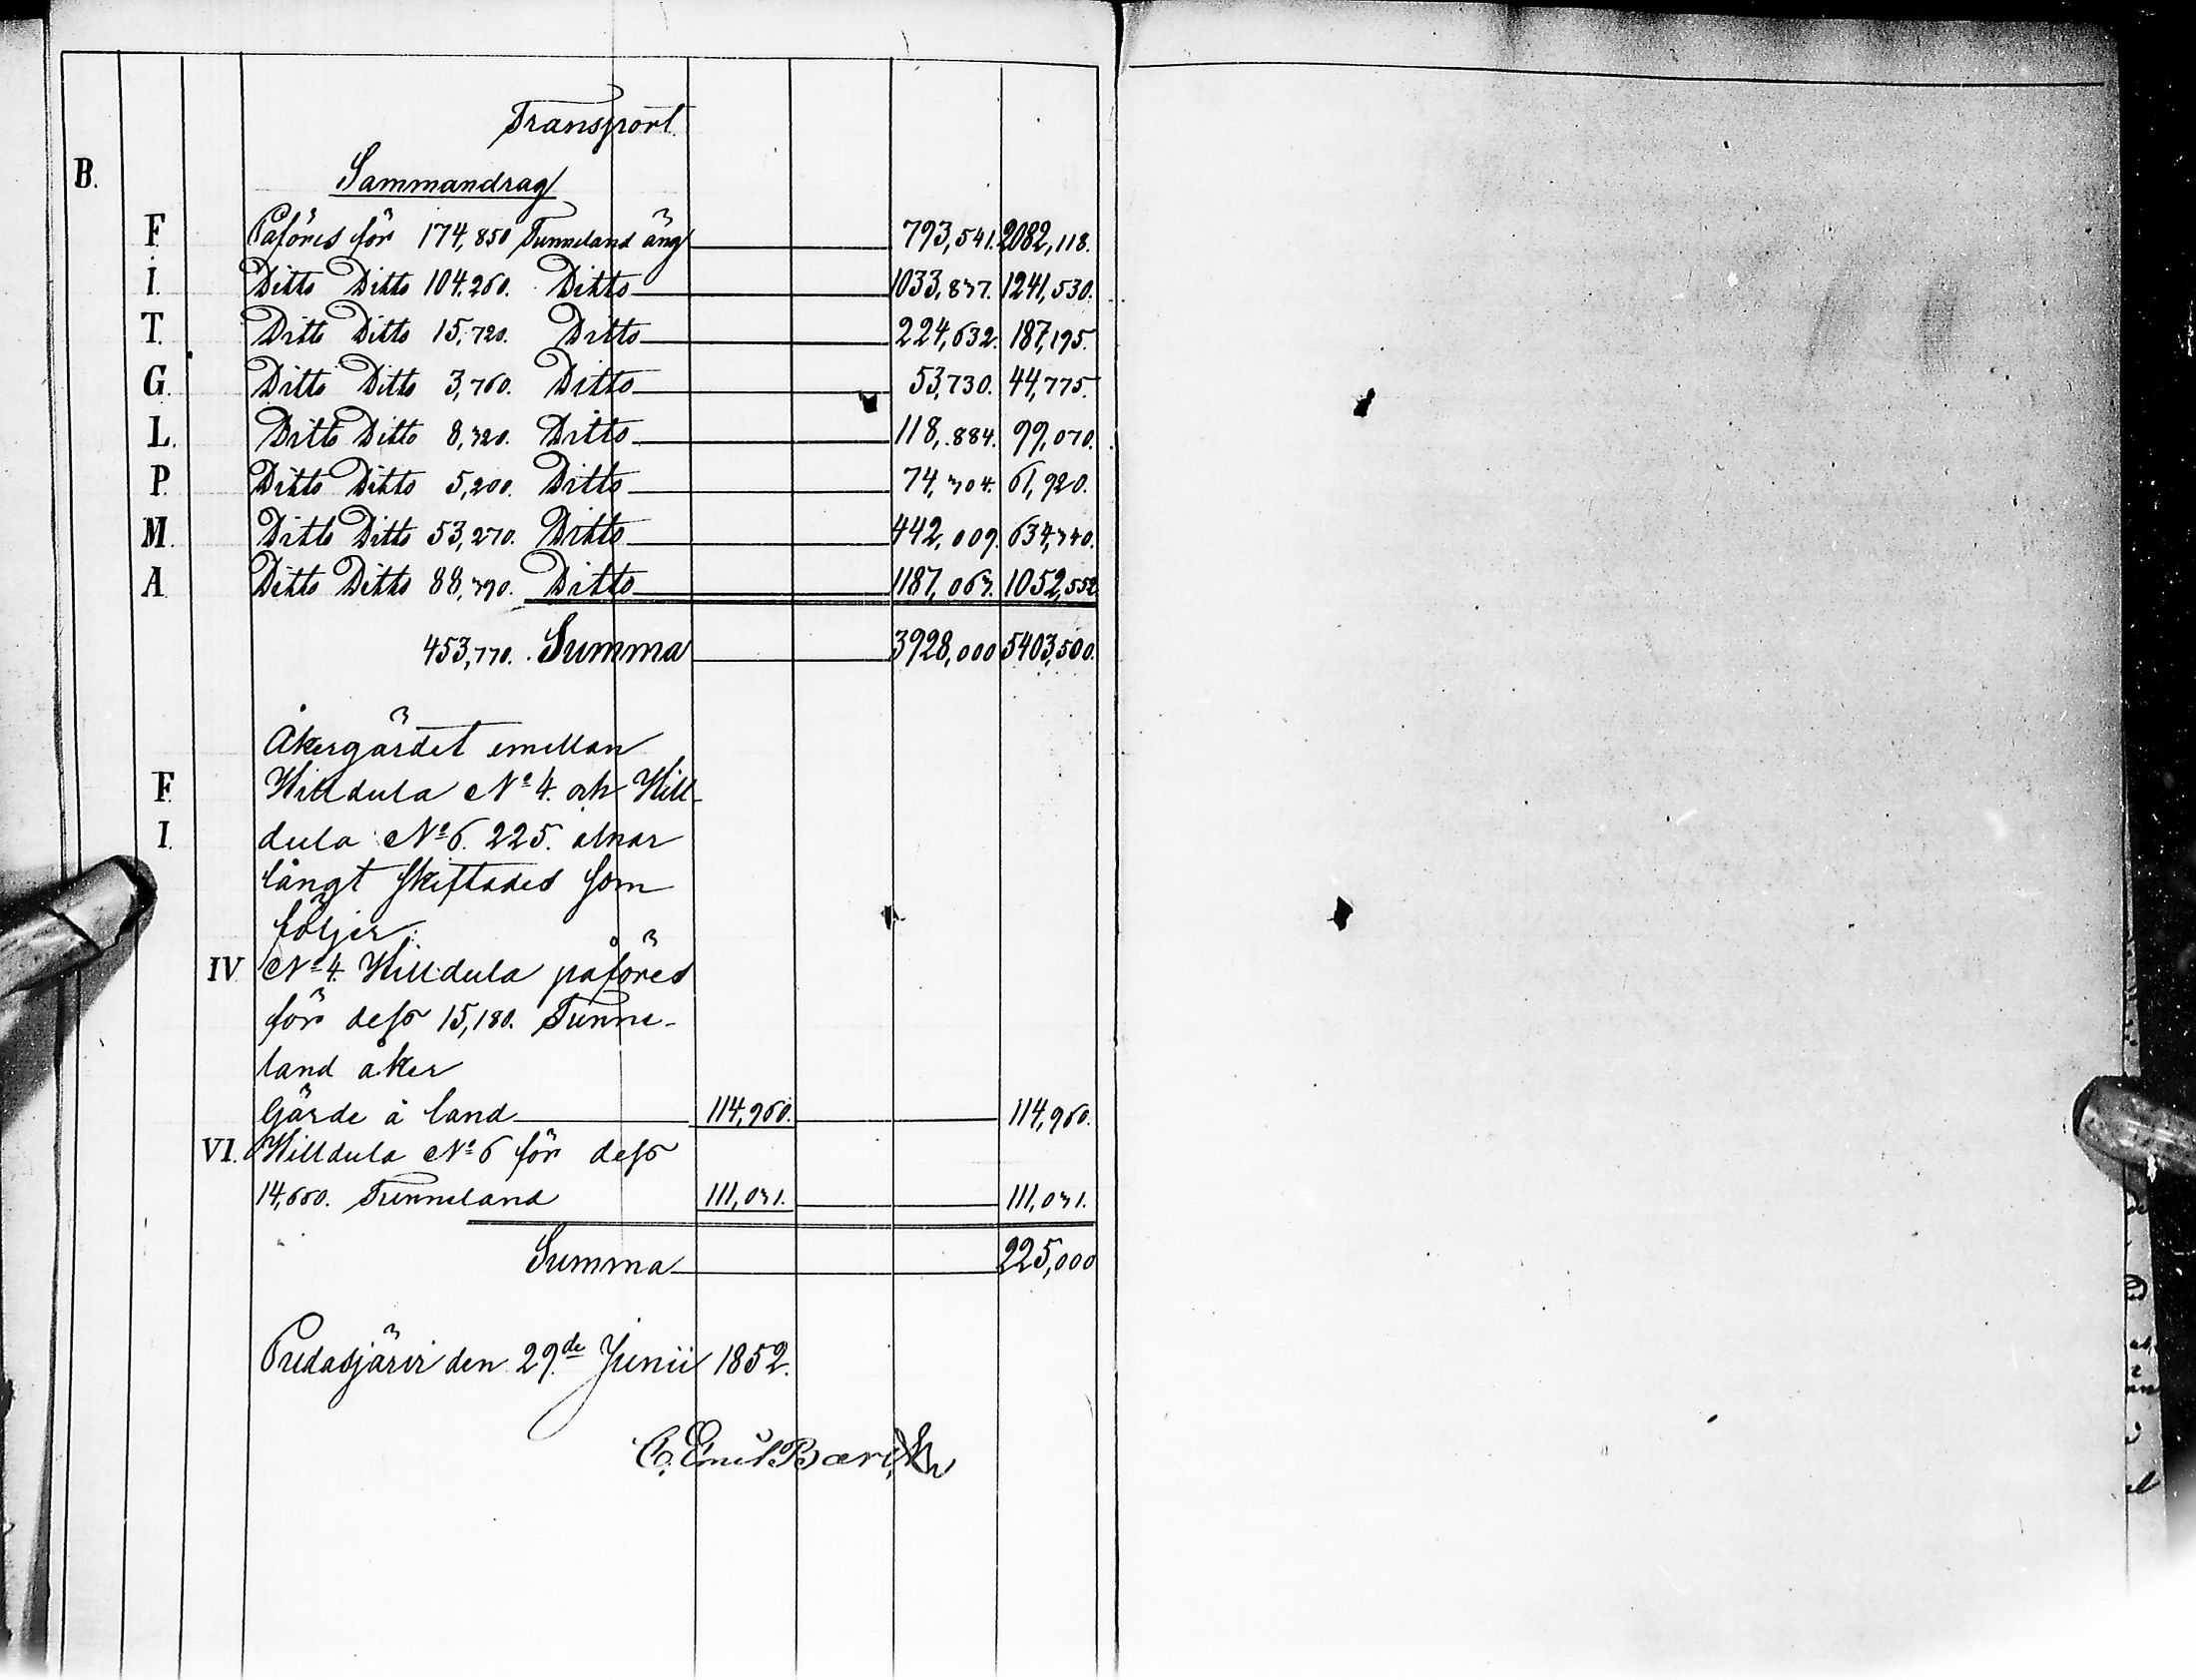 Transport.
B.
Sammandrag
F. Påföres för 174,850 Tunneland äng 793,541. 2082,118.
I. Ditto Ditto 104,260. Ditto 1033,837. 1241,530.
T. Ditto Ditto 15,720. Ditto 224,632. 187,195.
G. Ditto Ditto 3,760. Ditto 53,730. 44,775.
L. Ditto Ditto 8,320. Ditto 118,884. 99,070.
P. Ditto Ditto 5,200. Ditto 74,304. 61,920.
M. Ditto Ditto 53,270. Ditto 442,009. 634,340.
A Ditto Ditto 88,390. Ditto 1187,063. 1052,552
453,770. Summa 3928,000 5403,500.
Åkergärdet emellan
F. Hilldula No 4. och Hill-
I. dula No 6. 225. alnar
långt skiftades som
följer:
IV No 4 Hilldula påföres
för dess 15,180. Tunne-
land åker
Gärde å land 114,960. 114,960.
VI. Hilldula No 6 för dess
14,660. Tunneland 111,031. 111,031.
Summa 225,000
Pudasjärvi den 29.de Junii 1852.
C. Emil